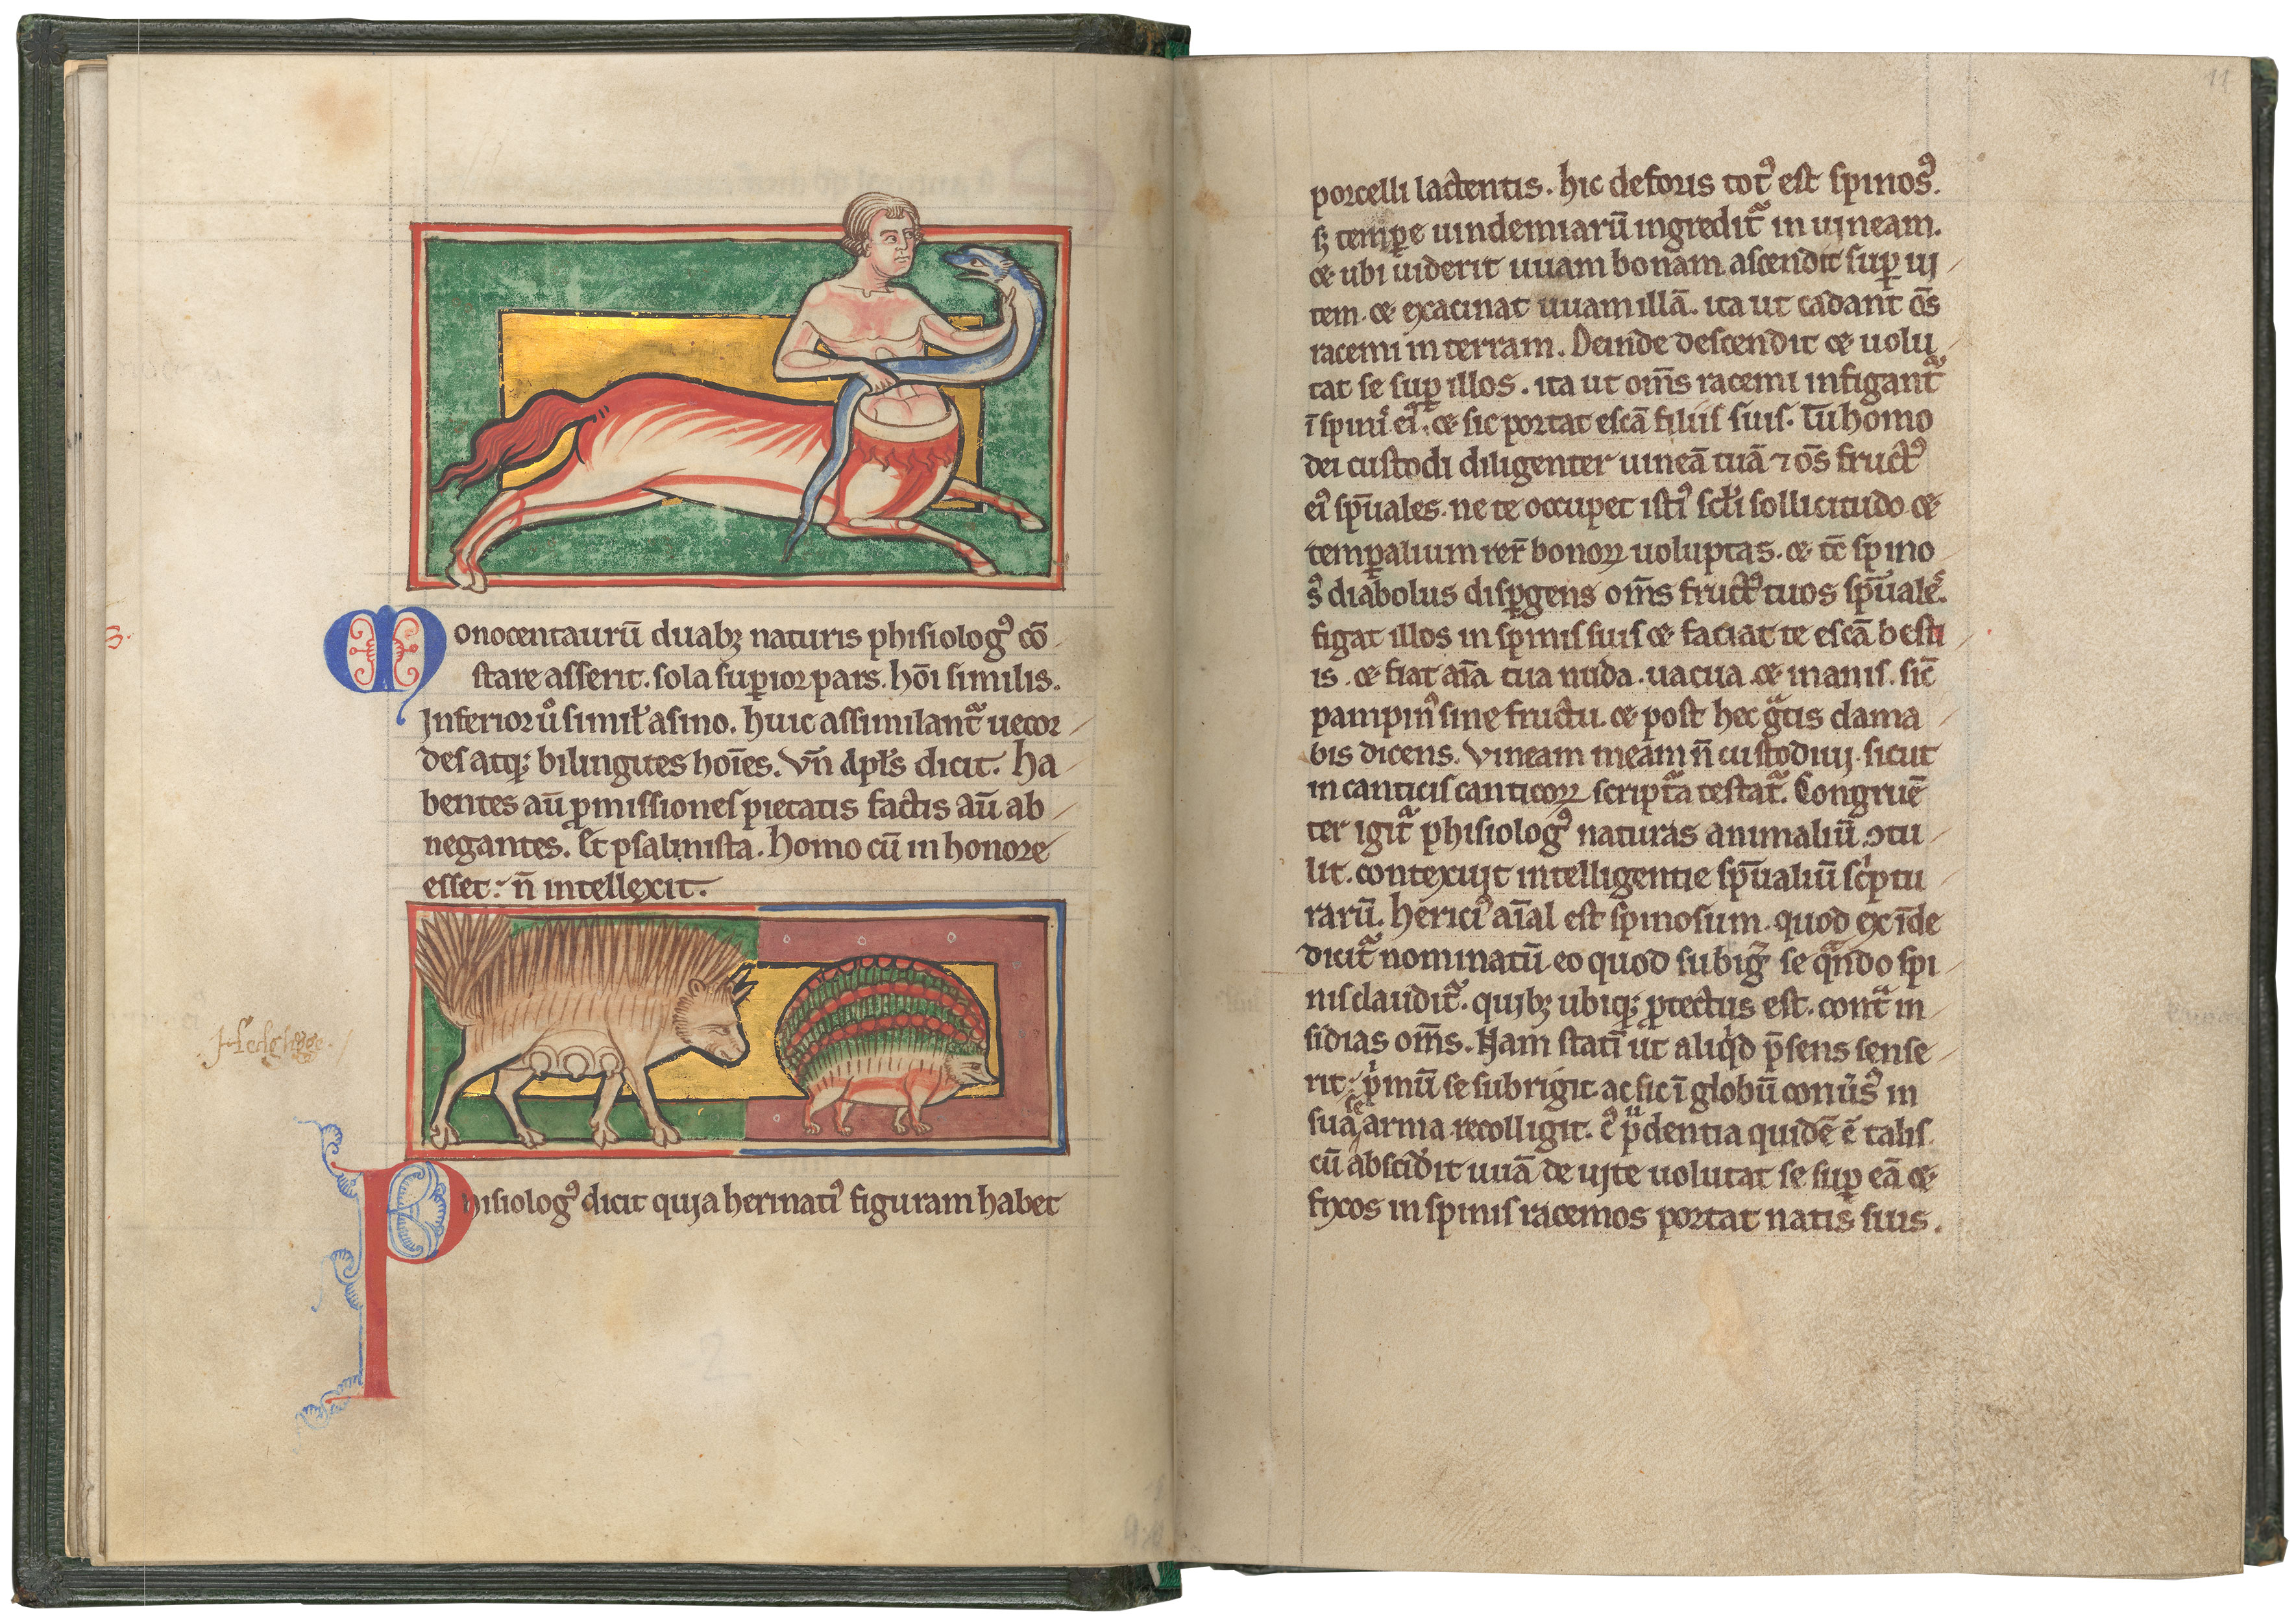 3.
Monocentaurū duabꝫ naturis phisiologꝰ cō
stare asserit. sola suꝑior pars. hōi similis.
Inferior ůo simił asino. huic assimilant᷑ uecor
des atqꝫ bilingues hoīes. Vn̄ apłs dicit. ha
bentes aū ꝓmissiones pietatis factis aū ab
negantes. Et psalmista. Homo cū in honore
esset: n̄ intellexit.
Hedghogge.
Phisiologꝰ dicit quia herinatiꝰ figuram habet
11
porcelli lactentis. hic deforis totꝰ est spinosꝰ.
sꝫ tempore uindemiarū ingredit᷑ in uineam.
et ubi uiderit uuam bonam ascendit suꝑ ui
tem. et exacinat uuam illā. ita ut cadant om̄s
racemi in terram. Deinde descendit et uolu
tat se suꝑ illos. ita ut om̄s racemi infigant᷑
ī spinis eiꝰ. et sic portat escā filiis suis. Tu homo
dei custodi diligenter uineā tuā ⁊ om̄s fructꝰ
eiꝰ sp̄uales. ne te occupet istiꝰ scłi sollicitudo et
temꝑalium rer̄ bonoꝝ uoluptas. et tc̄ spino
sꝰ diabolus disꝑgens om̄s fructꝰ tuos sp̄uales.
figat illos in spinis suis et faciat te escā besti
is. et fiat aīa tua nuda. uacua et inanis. sic̄
pampinꝰ sine fructu. et post hec gᵃtis clama
bis dicens. Vineam meam n̄ custodiui. sicut
in canticis canticoꝝ scriptᵃ testat᷑. Congruē
ter igit᷑ phisiologꝰ naturas animaliū ꝯtu
lit. contexuit intelligentie sp̄ualiū scͥptu
rarū. Hericiꝰ aīal est spinosum. quod exīde
dicit᷑ nominatū. eo quod subigͭ se qᵃndo spi
nis claudit᷑. quibꝫ ubiqꝫ ꝓtectus est. contᵃ in
sidias om̄s. Nam statī ut aliqͥd p̄sens sense
rit: pͥmū se subrigit. ac sic ī globū conūsꝰ in
sua se arma recolligit. eiꝰ pͧdentia quidē ē talis
cū absciderit uuā de uite uolutat se suꝑ eā et
fixos in spinis racemos portat natis suis.